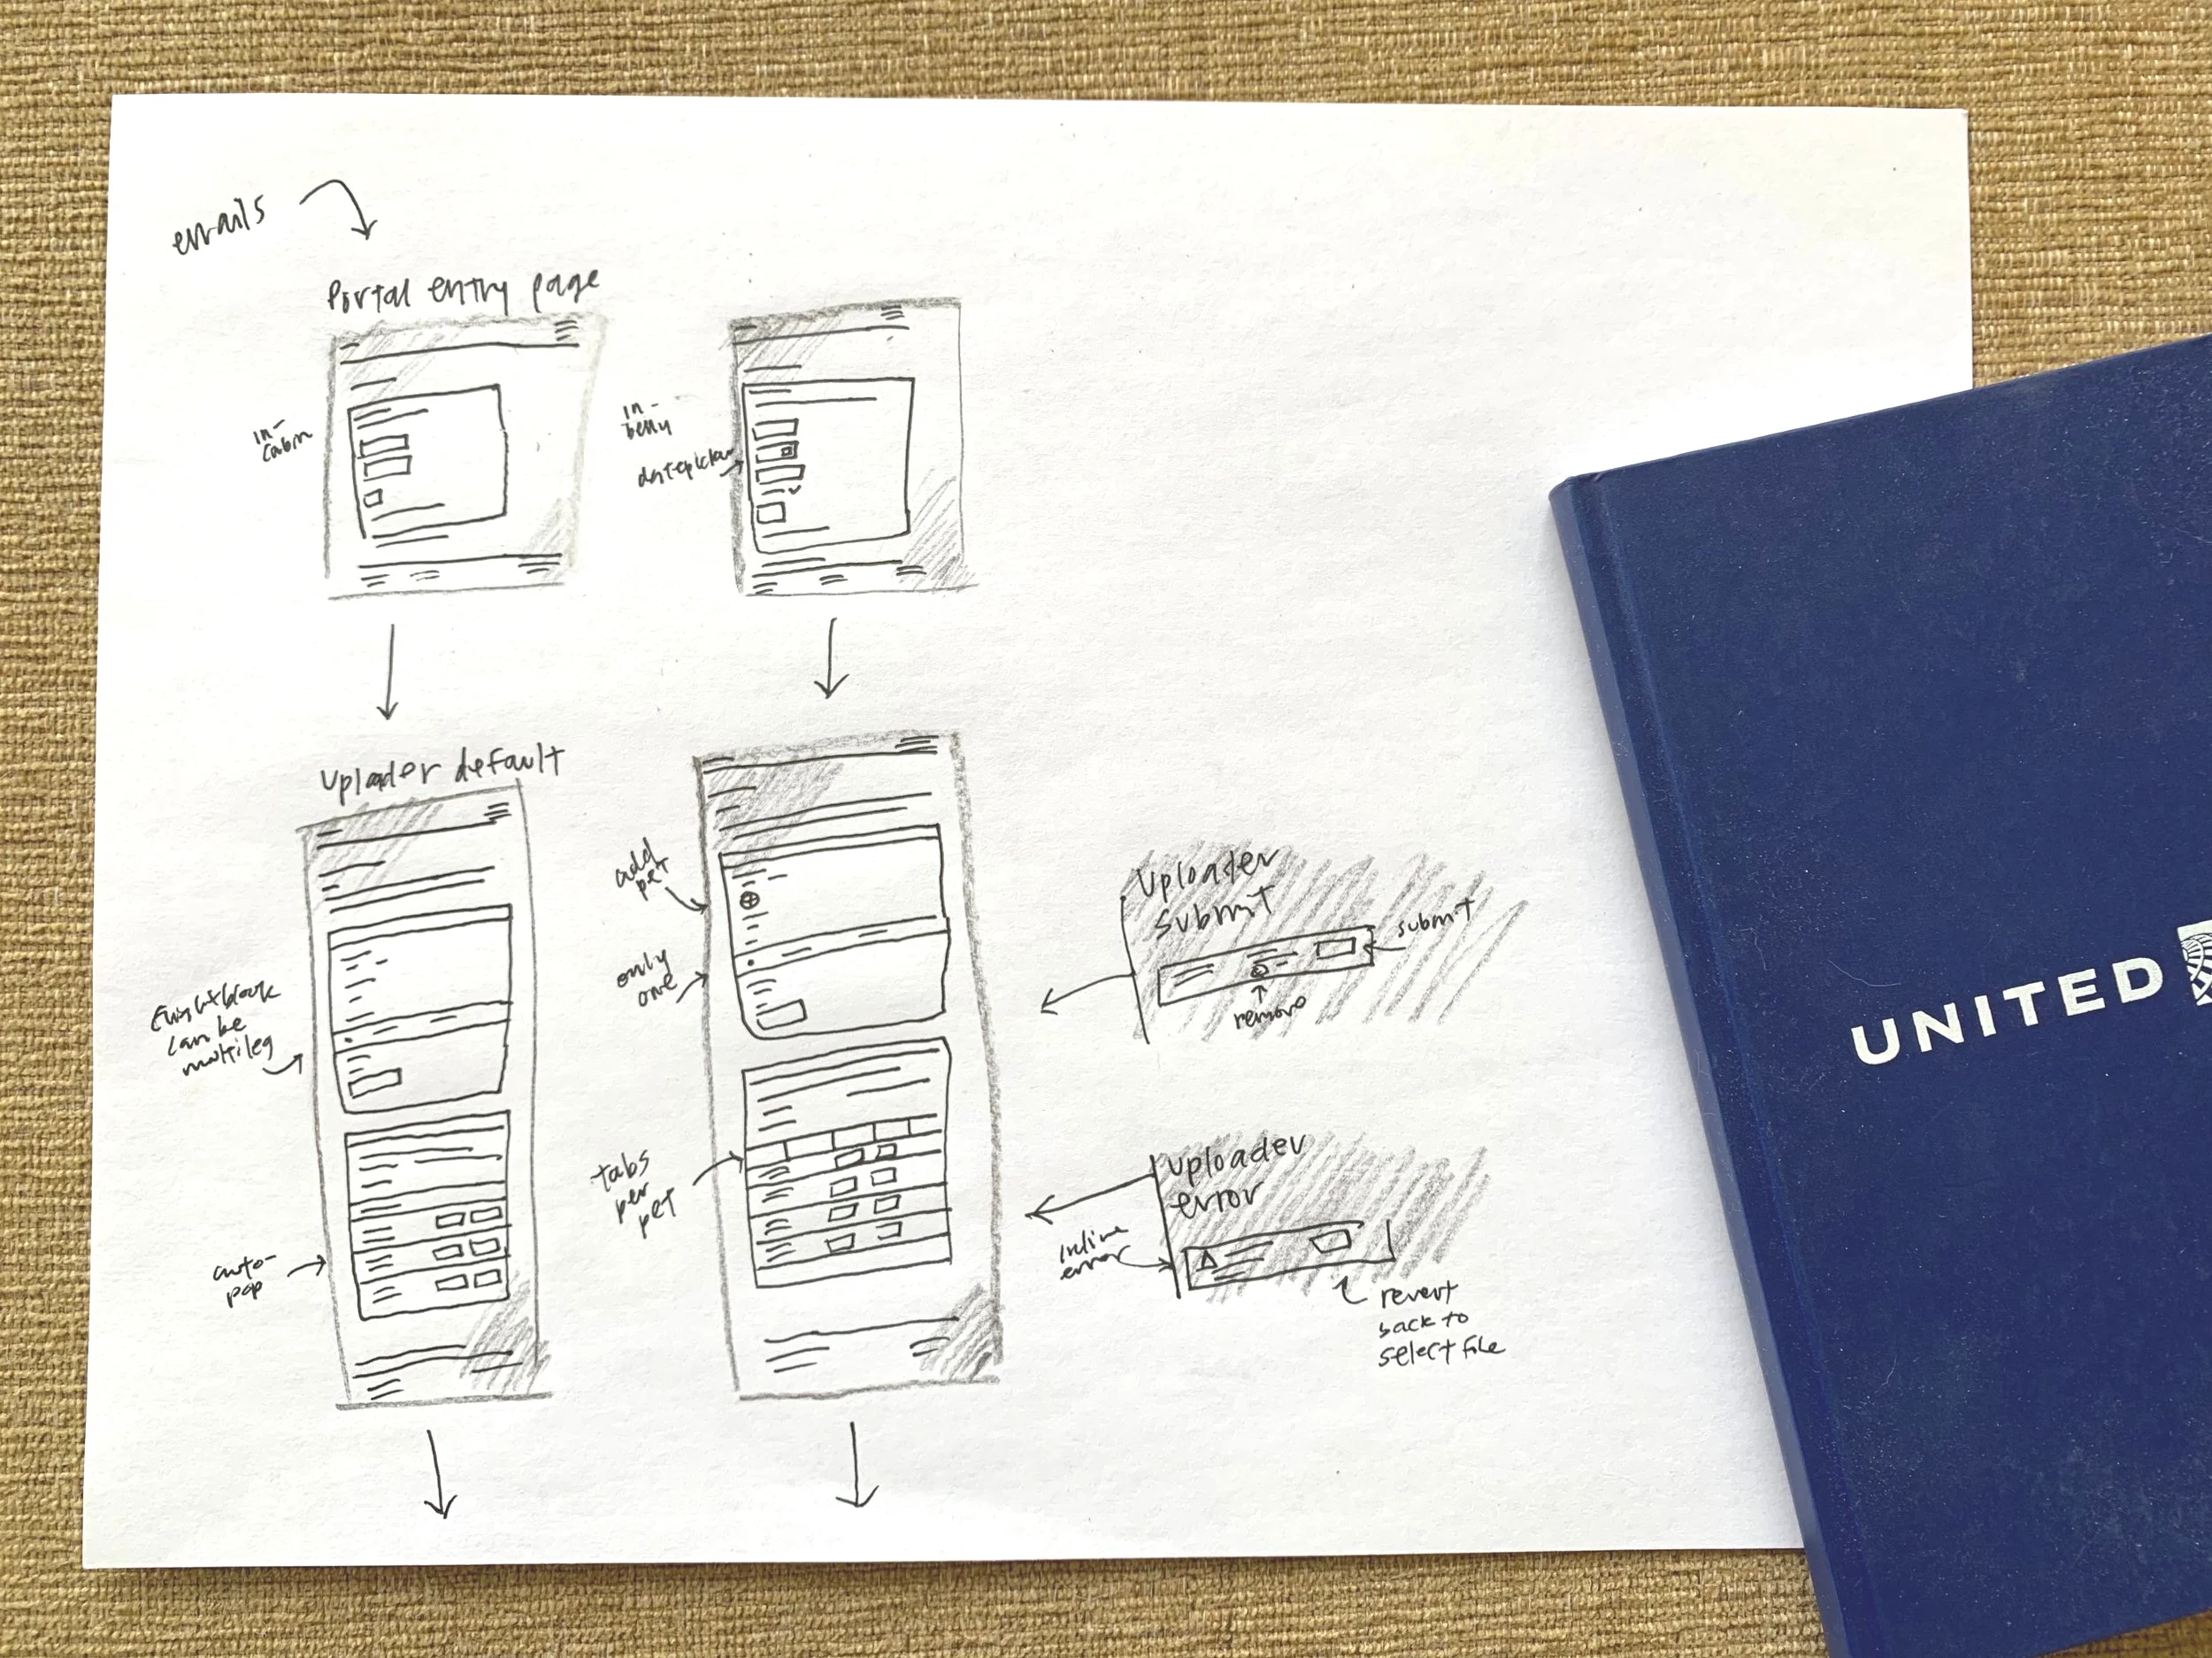 emails
Portal entry page
in-
cabin
in-
belly
datepicker
Uploader default
Flight block
can be
multileg
auto-
pop
add
pet
only
one
tabs
per
pet
Uploader
submit
submit
remove
Uploader
error
inline
error
revert
back to
select file
UNITED